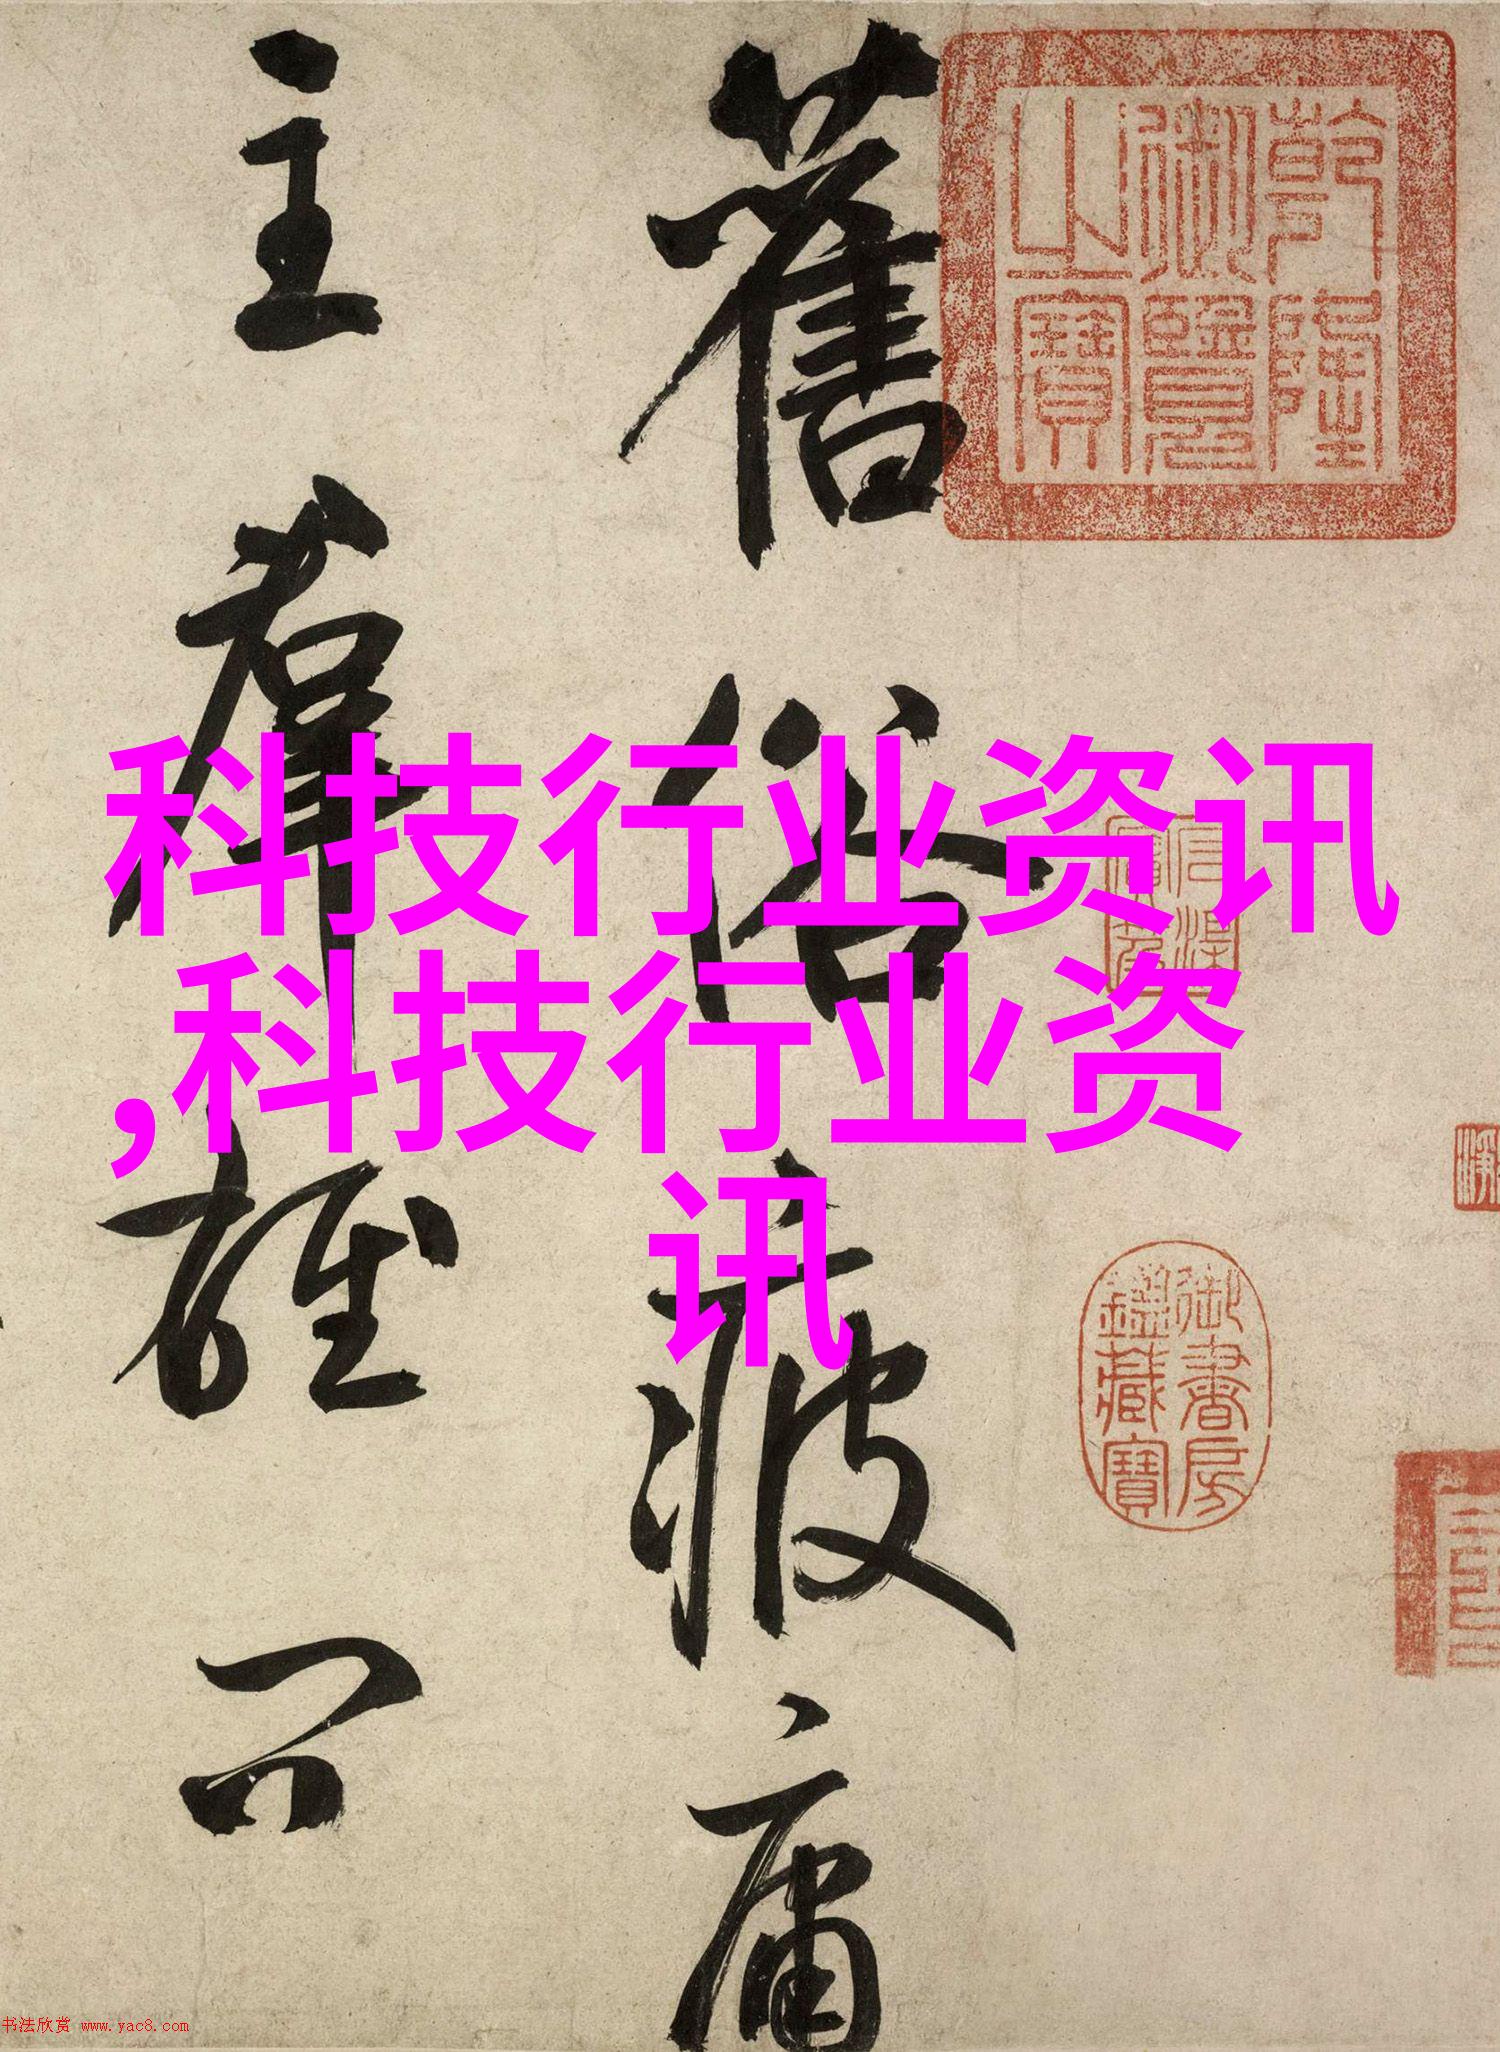 科技行业资讯
,科技行业资
讯
舊俗疲庸
主羣雄
乾隆
御覽
之寶
御書房
鑑藏寶
书法欣赏 www.yac8.com